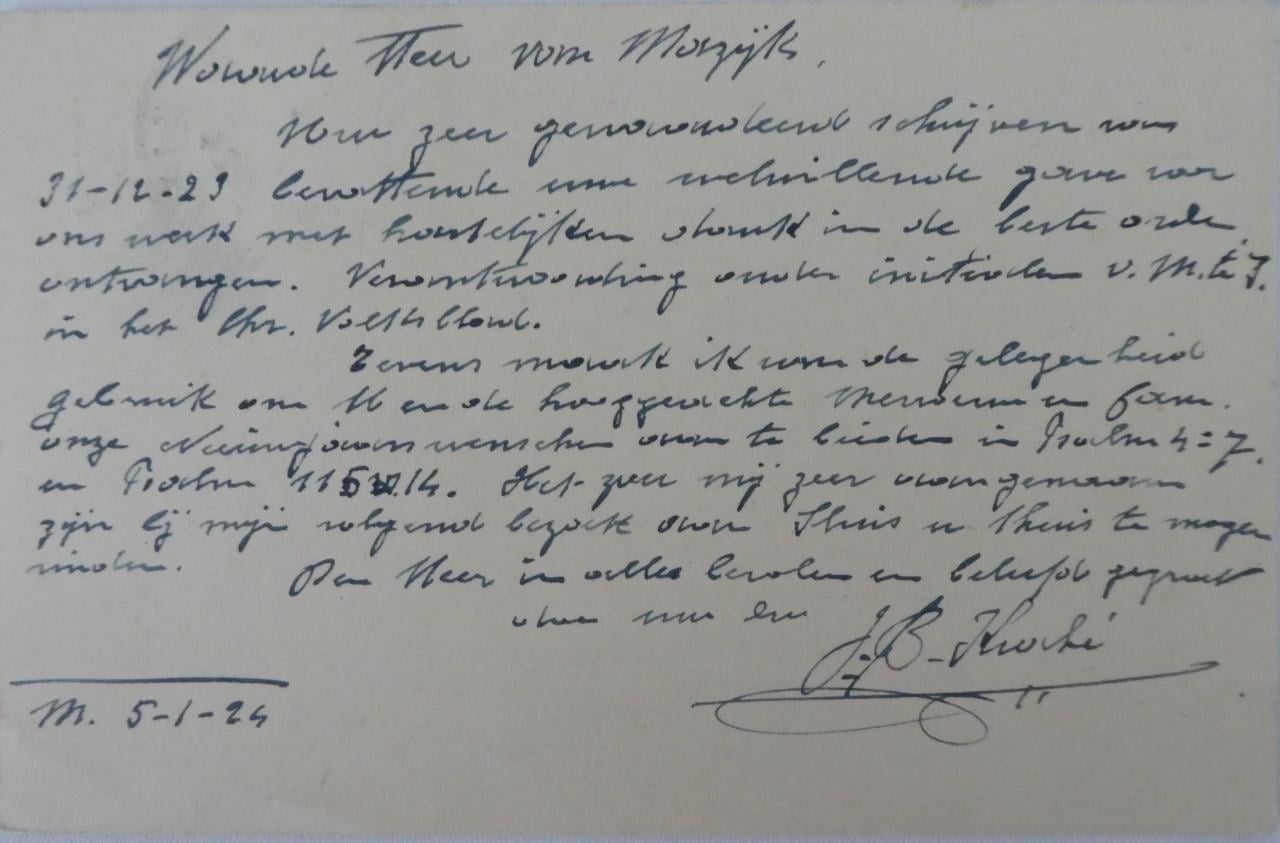 Waarde Heer van Marzijk,
Uw zeer gewaardeerd schrijven van
31-12-23 bevattende uwe welwillende gave voor
ons werk met hartelijken dank in de beste orde
ontvangen. Verantwoording onder initialen v. M. te Z.
in het Chr. Volksblad.
Tevens maak ik van de gelegenheid
gebruik om U en de hooggeachte Mevrouw en fam.
onze Nieuwjaarswenschen aan te bieden in Psalm 4:7.
en Psalm 115 14. Het zou mij zeer aangenaam
zijn bij mijn volgend bezoek aan Sluis u thuis te mogen
vinden.
Den Heer in alles bevolen en beleefd gegroet
door uw dw
J. B.
M. 5-1-24